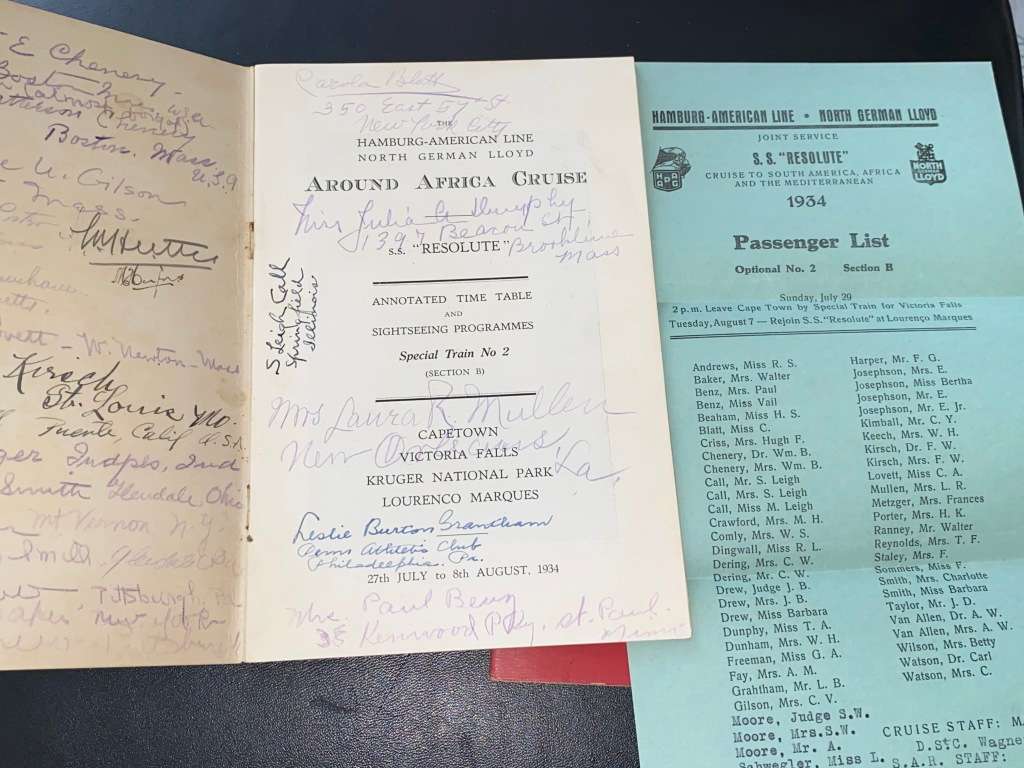 E Cheney.
Boston Mass
Boston. Mass
U.S.A
U. Gilson
Mass.
W. Newton - Mass
Kirsch
St. Louis Mo.
Puente, Calif U.S.A.
Indpls, Ind
Smith Glendale, Ohio
Mt Vernon N.Y.
Pittsburgh, Pa
350 East 57th St
New York City
THE
HAMBURG-AMERICAN LINE
NORTH GERMAN LLOYD
AROUND AFRICA CRUISE
Miss Julia A Dunphy
1397 Beacon St.
Brookline
Mass
S.S. "RESOLUTE"
S Leigh Call
Springfield
Illinois
ANNOTATED TIME TABLE
AND
SIGHTSEEING PROGRAMMES
Special Train No 2
(SECTION B)
Mrs Laura R. Mullen
New Orleans, La,
CAPETOWN
VICTORIA FALLS
KRUGER NATIONAL PARK
LOURENCO MARQUES
Leslie Burton Grantham
Penn Athletic Club
Philadelphia. Pa.
27th JULY to 8th AUGUST, 1934
Mrs. Paul Benz
35 Kenwood Pky. St. Paul.
Minn
HAMBURG-AMERICAN LINE • NORTH GERMAN LLOYD
JOINT SERVICE
S. S. "RESOLUTE"
CRUISE TO SOUTH AMERICA, AFRICA
AND THE MEDITERRANEAN
1934
HAPAG
NORTH GERMAN LLOYD
Passenger List
Optional No. 2 Section B
Sunday, July 29
2 p.m. Leave Cape Town by Special Train for Victoria Falls
Tuesday, August 7 — Rejoin S.S. "Resolute" at Lourenço Marques
Andrews, Miss R. S.
Baker, Mrs. Walter
Benz, Mrs. Paul
Benz, Miss Vail
Beaham, Miss H. S.
Blatt, Miss C.
Criss, Mrs. Hugh F.
Chenery, Dr. Wm. B.
Chenery, Mrs. Wm. B.
Call, Mr. S. Leigh
Call, Mrs. S. Leigh
Call, Miss M. Leigh
Crawford, Mrs. M. H.
Comly, Mrs. W. S.
Dingwall, Miss R. L.
Dering, Mrs. C. W.
Dering, Mr. C. W.
Drew, Judge J. B.
Drew, Mrs. J. B.
Drew, Miss Barbara
Dunphy, Miss T. A.
Dunham, Mrs. W. H.
Freeman, Miss G. A.
Fay, Mrs. A. M.
Grahtham, Mr. L. B.
Gilson, Mrs. C. V.
Moore, Judge S.W.
Moore, Mrs.S.W.
Moore, Mr. A.
Schwegler, Miss L.
Harper, Mr. F. G.
Josephson, Mrs. E.
Josephson, Miss Bertha
Josephson, Mr. E.
Josephson, Mr. E. Jr.
Kimball, Mr. C. Y.
Keech, Mrs. W. H.
Kirsch, Dr. F. W.
Kirsch, Mrs. F. W.
Lovett, Miss C. A.
Mullen, Mrs. L. R.
Metzger, Mrs. Frances
Porter, Mrs. H. K.
Ranney, Mr. Walter
Reynolds, Mrs. T. F.
Staley, Mrs. F.
Sommers, Miss F.
Smith, Mrs. Charlotte
Smith, Miss Barbara
Taylor, Mr. J. D.
Van Allen, Dr. A. W.
Van Allen, Mrs. A. W.
Wilson, Mrs. Betty
Watson, Dr. Carl
Watson, Mrs. C.
CRUISE STAFF:
D.StC. Wagne
S.A.R. STAFF: